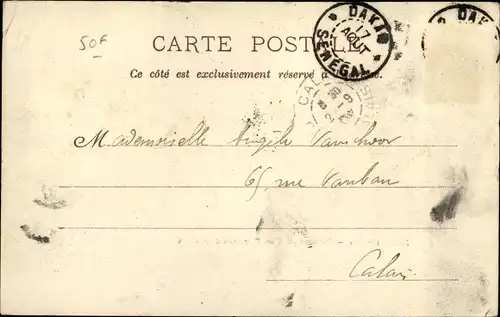 50F
CARTE POSTALE
Ce côté est exclusivement réservé à
DAKAR
17
AOUT
SENEGAL
DAK
CAL
Mademoiselle Angèle
65 rue Vauban
Calais